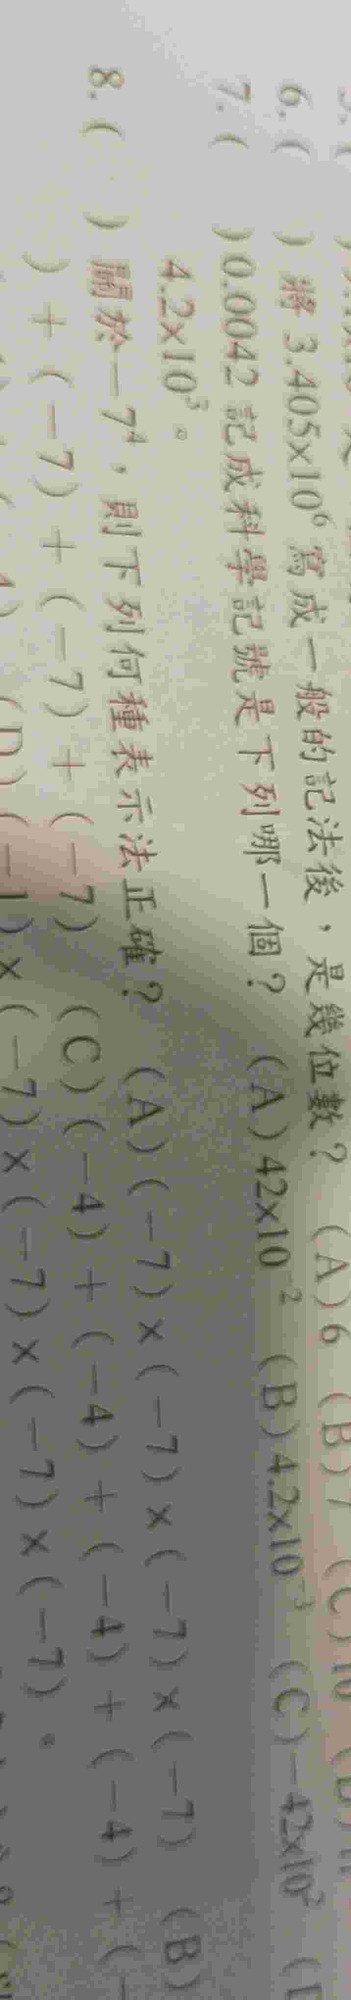 6. (　) 將 3.405x10⁶ 寫成一般的記法後，是幾位數？ (A) 6 (B) 7 (C) 10 (D)
7. (　) 0.0042 記成科學記號是下列哪一個？ (A) 42x10⁻² (B) 4.2x10⁻³ (C) －42x10²
4.2x10³。
8. (　) 關於－7⁴，則下列何種表示法正確？ (A) (－7)×(－7)×(－7)×(－7) (B)
)＋(－7)＋(－7)＋(－7) (C) (－4)＋(－4)＋(－4)＋(－4)＋(－
(D) (－1)×(－7)×(－7)×(－7)×(－7)。